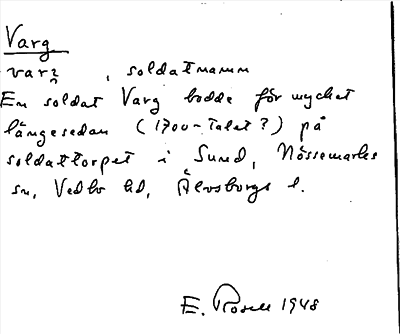 Varg
varg, soldatnamn
En soldat Varg bodde för mycket
längesedan (1700-talet?) på
soldattorpet i Sund, Nössemarks
sn, Vedbo hd, Älvsborgs l.
E. Rosell 1948